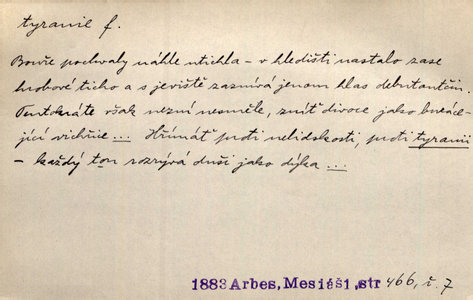 tyranie f.
Bouře pochvaly náhle utichla - v hledišti nastalo zase
hrobové ticho a s jeviště zaznívá jenom hlas debutantčin.
Tentokráte však nezní nesměle, znítˇ divoce jako burácející
vichřice ... Hřímátˇ proti nelidskosti, proti tyranii
- každý ton rozrývá duši jako dýka ...
1883 Arbes, Mesiáš1, str 466, ř. 7